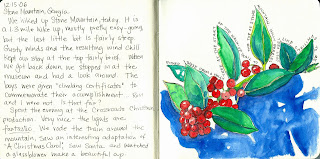 12.15.06
Stone Mountain, Georgia
We hiked up Stone Mountain today. It is
a 1.3 mile hike up, mostly pretty easy-going
but the last little bit is fairly steep.
Gusty winds and the resulting wind chill
kept our stay at the top fairly brief. When
we got back down we stopped in at the
museum and had a look around. The
boys were given "climbing certificates" to
commemorate their accomplishment.
and I were not. Is that fair?
Spent the evening at the Crossroads Christmas
production. Very nice - the lights are
fantastic. We rode the train around the
mountain. Saw an interesting adaptation of
"A Christmas Carol", saw Santa and watched
a glassblower make a beautiful cup.